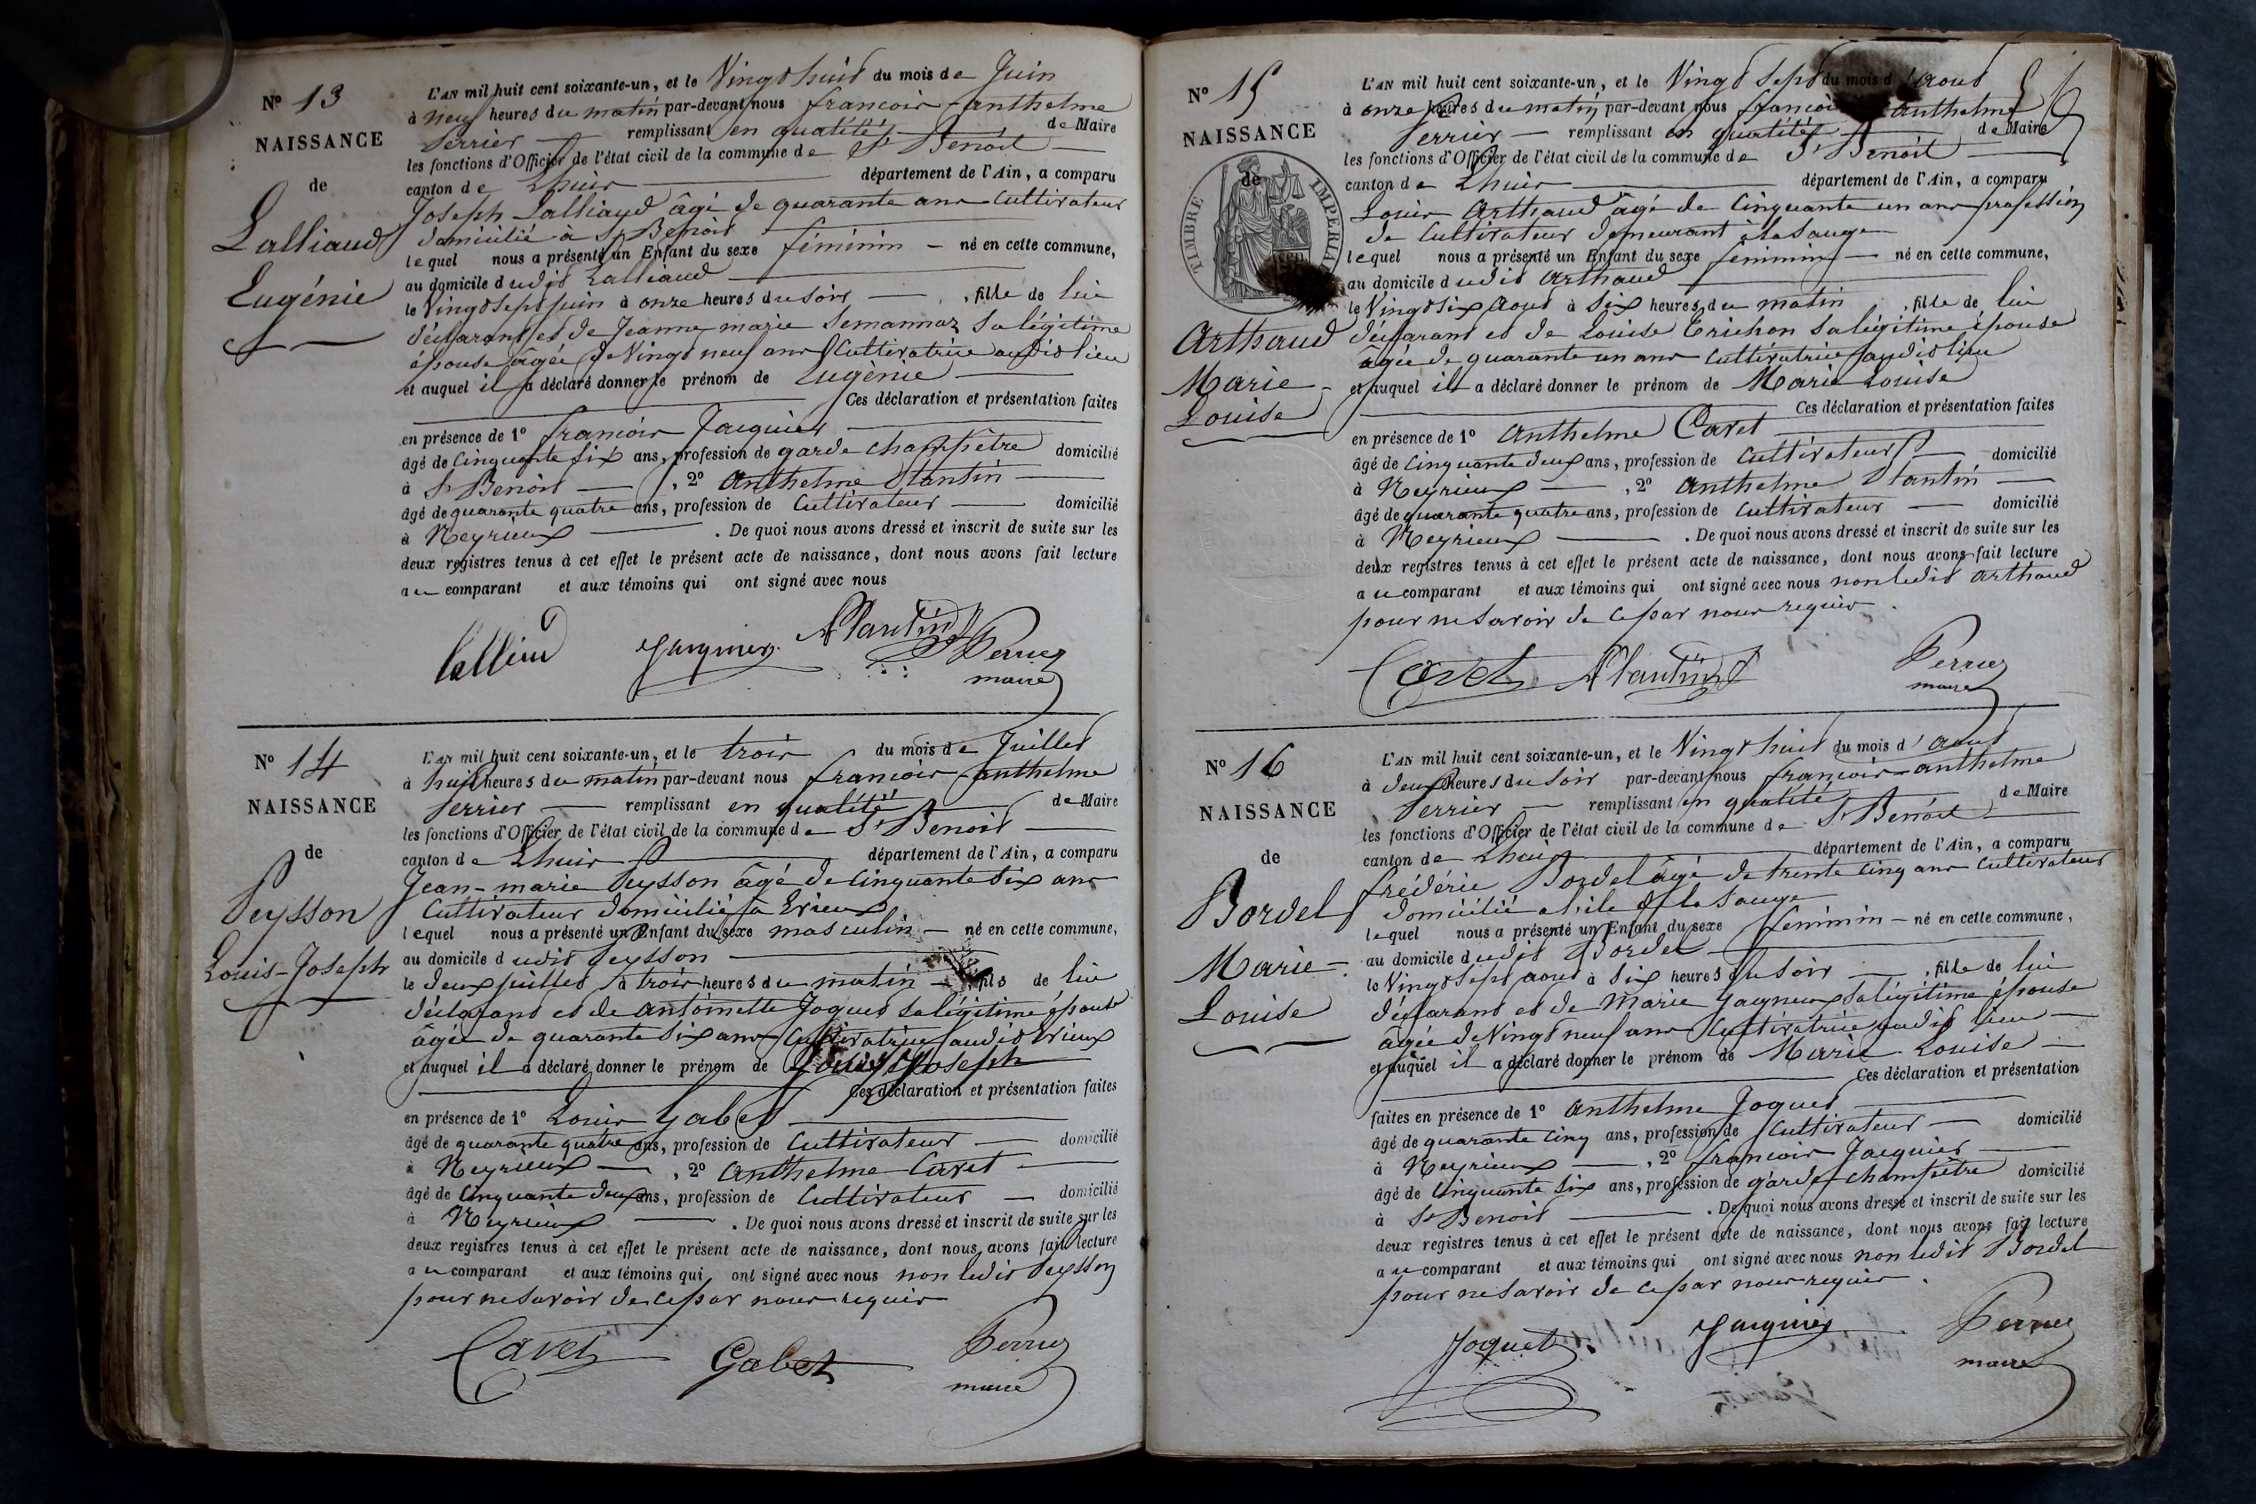 N° 13
NAISSANCE
de
Lalliaud
Eugénie
L'AN mil huit cent soixante-un, et le Vingt huit du mois de Juin
à neuf heures du matin par-devant nous françois-anthelme
Perrier remplissant en qualité de Maire
les fonctions d'Officier de l'état civil de la commune de St Benoit
canton de Lhuis département de l'Ain, a comparu
Joseph Lalliaud âgé de quarante ans Cultivateur
domicilié à St Benoit
lequel nous a présenté un Enfant du sexe féminin né en cette commune,
au domicile dudit Lalliaud
le Vingt sept juin à onze heures du soir, fille de lui
déclarant et de Jeanne marie Semannaz sa légitime
épouse âgée de Vingt neuf ans Cultivatrice audit lieu
et auquel il a déclaré donner le prénom de Eugènie
Ces déclaration et présentation faites
en présence de 1° françois Jacquier
âgé de Cinquante Six ans, profession de garde champêtre domicilié
à St Benoit, 2° Anthelme Plantin
âgé de quarante quatre ans, profession de Cultivateur domicilié
à Neyrieux. De quoi nous avons dressé et inscrit de suite sur les
deux registres tenus à cet effet le présent acte de naissance, dont nous avons fait lecture
au comparant et aux témoins qui ont signé avec nous
Jacquier APlantin Perrier
maire
N° 14
NAISSANCE
de
Peysson
Louis-Joseph
L'AN mil huit cent soixante-un, et le trois du mois de Juillet
à huit heures du matin par-devant nous françois-anthelme
Perrier remplissant en qualité de Maire
les fonctions d'Officier de l'état civil de la commune de St Benoit
canton de Lhuis département de l'Ain, a comparu
Jean-marie Peysson âgé de Cinquante Six ans
Cultivateur domicilié à Evieux
lequel nous a présenté un Enfant du sexe masculin né en cette commune,
au domicile dudit Peysson
le deux juillet à trois heures du matin, fils de lui
déclarant et de Antoinette Joquet sa légitime épouse
âgée de quarante six ans Cultivatrice audit Evieux
et auquel il a déclaré donner le prénom de Louis Joseph
Ces déclaration et présentation faites
en présence de 1° Louis Gabet
âgé de quarante quatre ans, profession de Cultivateur domicilié
à Neyrieux, 2° Anthelme Cavet
âgé de Cinquante deux ans, profession de Cultivateur domicilié
à Neyrieux. De quoi nous avons dressé et inscrit de suite sur les
deux registres tenus à cet effet le présent acte de naissance, dont nous avons fait lecture
au comparant et aux témoins qui ont signé avec nous non ledit Peysson
pour ne savoir de ce par nous requis
Cavet Gabet Perrier
maire
N° 15
NAISSANCE
de
TIMBRE IMPERIAL
Arthaud
Marie
Louise
L'AN mil huit cent soixante-un, et le Vingt Sept du mois d'aout
à onze heures du matin par-devant nous françois anthelme
Perrier remplissant en qualité de Maire
les fonctions d'Officier de l'état civil de la commune de St Benoit
canton de Lhuis département de l'Ain, a comparu
Louis Arthaud âgé de Cinquante un ans profession
de Cultivateur demeurant à la Sauge
lequel nous a présenté un Enfant du sexe feminin né en cette commune,
au domicile dudit Arthaud
le Vingt Six aout à Six heures du matin, fille de lui
déclarant et de Louise Trichon sa légitime épouse
âgée de quarante un ans Cultivatrice audit lieu
et auquel il a déclaré donner le prénom de Marie Louise
Ces déclaration et présentation faites
en présence de 1° Anthelme Cavet
âgé de Cinquante deux ans, profession de Cultivateur domicilié
à Neyrieux, 2° Anthelme Plantin
âgé de quarante quatre ans, profession de Cultivateur domicilié
à Neyrieux. De quoi nous avons dressé et inscrit de suite sur les
deux registres tenus à cet effet le présent acte de naissance, dont nous avons fait lecture
au comparant et aux témoins qui ont signé avec nous non ledit Arthaud
pour ne savoir de ce par nous requis.
Cavet APlantin Perrier
maire
N° 16
NAISSANCE
de
Bordel
Marie
Louise
L'AN mil huit cent soixante-un, et le Vingt huit du mois d'aout
à deux heures du Soir par-devant nous françois-anthelme
Perrier remplissant en qualité de Maire
les fonctions d'Officier de l'état civil de la commune de St Benoit
canton de Lhuis département de l'Ain, a comparu
frédéric Bordel âgé de trente cinq ans Cultivateur
domicilié à l'ile de la Sauge
lequel nous a présenté un Enfant du sexe feminin né en cette commune,
au domicile dudit Bordel
le Vingt Sept aout à Six heures du Soir, fille de lui
déclarant et de Marie Gagneux sa légitime épouse
âgée de Vingt neuf ans Cultivatrice audit lieu
et auquel il a déclaré donner le prénom de Marie Louise
Ces déclaration et présentation
faites en présence de 1° Anthelme Joquet
âgé de quarante Cinq ans, profession de Cultivateur domicilié
à Neyrieux, 2° françois Jacquier
âgé de Cinquante Six ans, profession de garde champêtre domicilié
à St Benoit. De quoi nous avons dressé et inscrit de suite sur les
deux registres tenus à cet effet le présent acte de naissance, dont nous avons fait lecture
au comparant et aux témoins qui ont signé avec nous non ledit Bordel
pour ne savoir de ce par nous requis.
Joquet Jacquier Perrier
maire